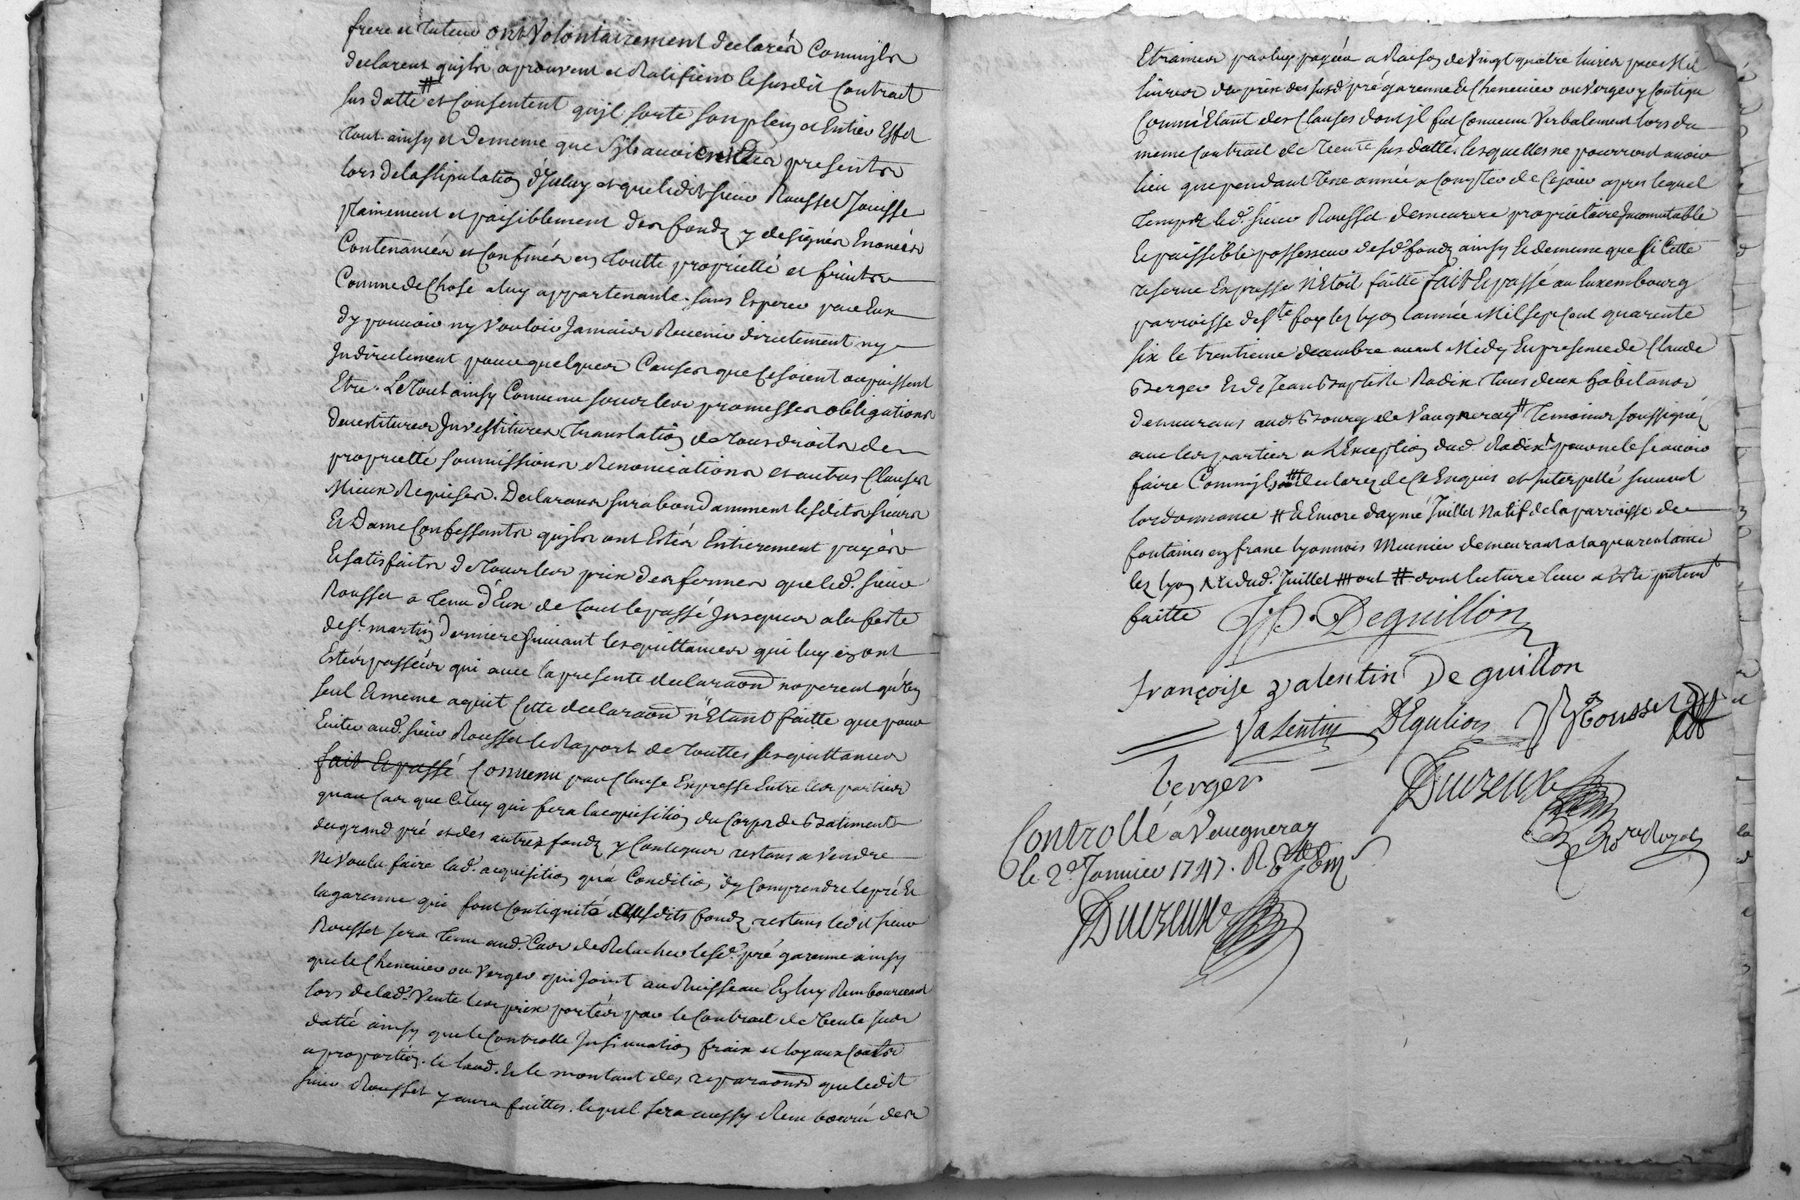 frere et tuteur ont volontairement declarés comm'ils
declarent quils aprouvent et Ratifient le susdit Contract
sus datté # et Consentent quil sorte son plein et Entier Effet
tout ainsy et de meme que s'ils avoient Etés presents
lors de la stipulation d'Iceluy et que ledit sieur Rousset Jouisse
plainement et paisiblement des fondz y designés Enoncés
Contenancés et Confinés en toutte proprietté et fruits
Comme de Chose a luy appartenante. sans Esperer par Eux
d'y pouvoir ny vouloir Jamais Revenir directement ny
Indirectement pour quelques Causes que Ce soient ou puissent
Etre. Le tout ainsy Convenu sous les promesses obligations
devestitures Investitures translation de tous droits de
proprietté soumissions Renonciations et autres Clauses
Mieux Requises. Declarans surabondamment lesdits sieurs
Et Dame Confessants quils ont Estés Entierement payés
Et satisfaits de tous les prix des fermes que led. sieur
Rousset a tenu d'Eux de tout le passé Jusques a la feste
de st. martin derniere suivant les quittances qui luy en ont
Estés passées qui avec la presente declaraon n'operent qu'un
seul Et meme aquit Cette declaraon n'Etant faitte que pour
Eviter aud. sieur Rousset le Raport de touttes ses quittances
fait Et passé Convenu par Clause Expresse Entre les parties
quau Cas que Celuy qui fera lacquisition du Corps de Batiment
du grand pré et des autres fondz y Contigus restans a vendre
ne voulu faire lad. acquisition qu'a Condition d'y Comprendre le pré Et
la garenne qui font Contiguité auxdits fondz restans ledit sieur
Rousset sera tenu aud. Cas de Relacher lesd. pré garenne ainsy
que le Chenevier ou verger qui Joint au Ruisseau En luy Remboursant
lors de lad. vente les prix portés par le Contract de vente sus
datté ainsy que le Controlle Insinuation fraix et loyaux Couts
a proportion. le laod. Et le montant des reparaons que ledit
sieur Rousset y aura faittes. lequel sera aussy Remboursé des
Etraines par luy payées a Raison de vingt quatre livres par Mil
livres du prix des susd. pré garenne Et Chenevier ou verger y Contigu
Comme Etant des Clauses dont il fut Convenu verbalement lors du
meme Contract de vente sus datté. lesquelles ne pourront avoir
lieu que pendant une année a Compter de Ce jour apres lequel
temps led. sieur Rousset demeurera proprietaire Incomutable
Et paissible possesseur desd. fondz ainsy Et de meme que si Cette
reserve Expresse n'Etoit faitte fait Et passé au luxembourg
parroisse de Ste foy lez lyon l'année Mil sept Cent quarente
six le trentieme decembre avant Midy En presence de Claude
Berger Et de Jean Baptiste Radix tous deux habitans
demeurans aud. Bourg de Vaugneray # temoins soussignés
avec les parties a L'Exception dud. Radix pour ne le sçavoir
faire Comm'ils ont declarez de Ce Enquis et Interpellé suivant
lordonnance # Et Encore d'aymé Juillet Natif de la parroisse de
fontaines en franc lyonnois Meunier demeurant a la quarentaine
lez lyon # Et dud. Juillet ### ont # dont lecture leur a Eté presentt
faitte JP. Deguillon
françoise valentin De guillon
Valentin DEguilion Rousset
berger
Duvreux
Nore Royal
Controllé a Vaugneray
le 2e. Janvier 1747.
Duvreux